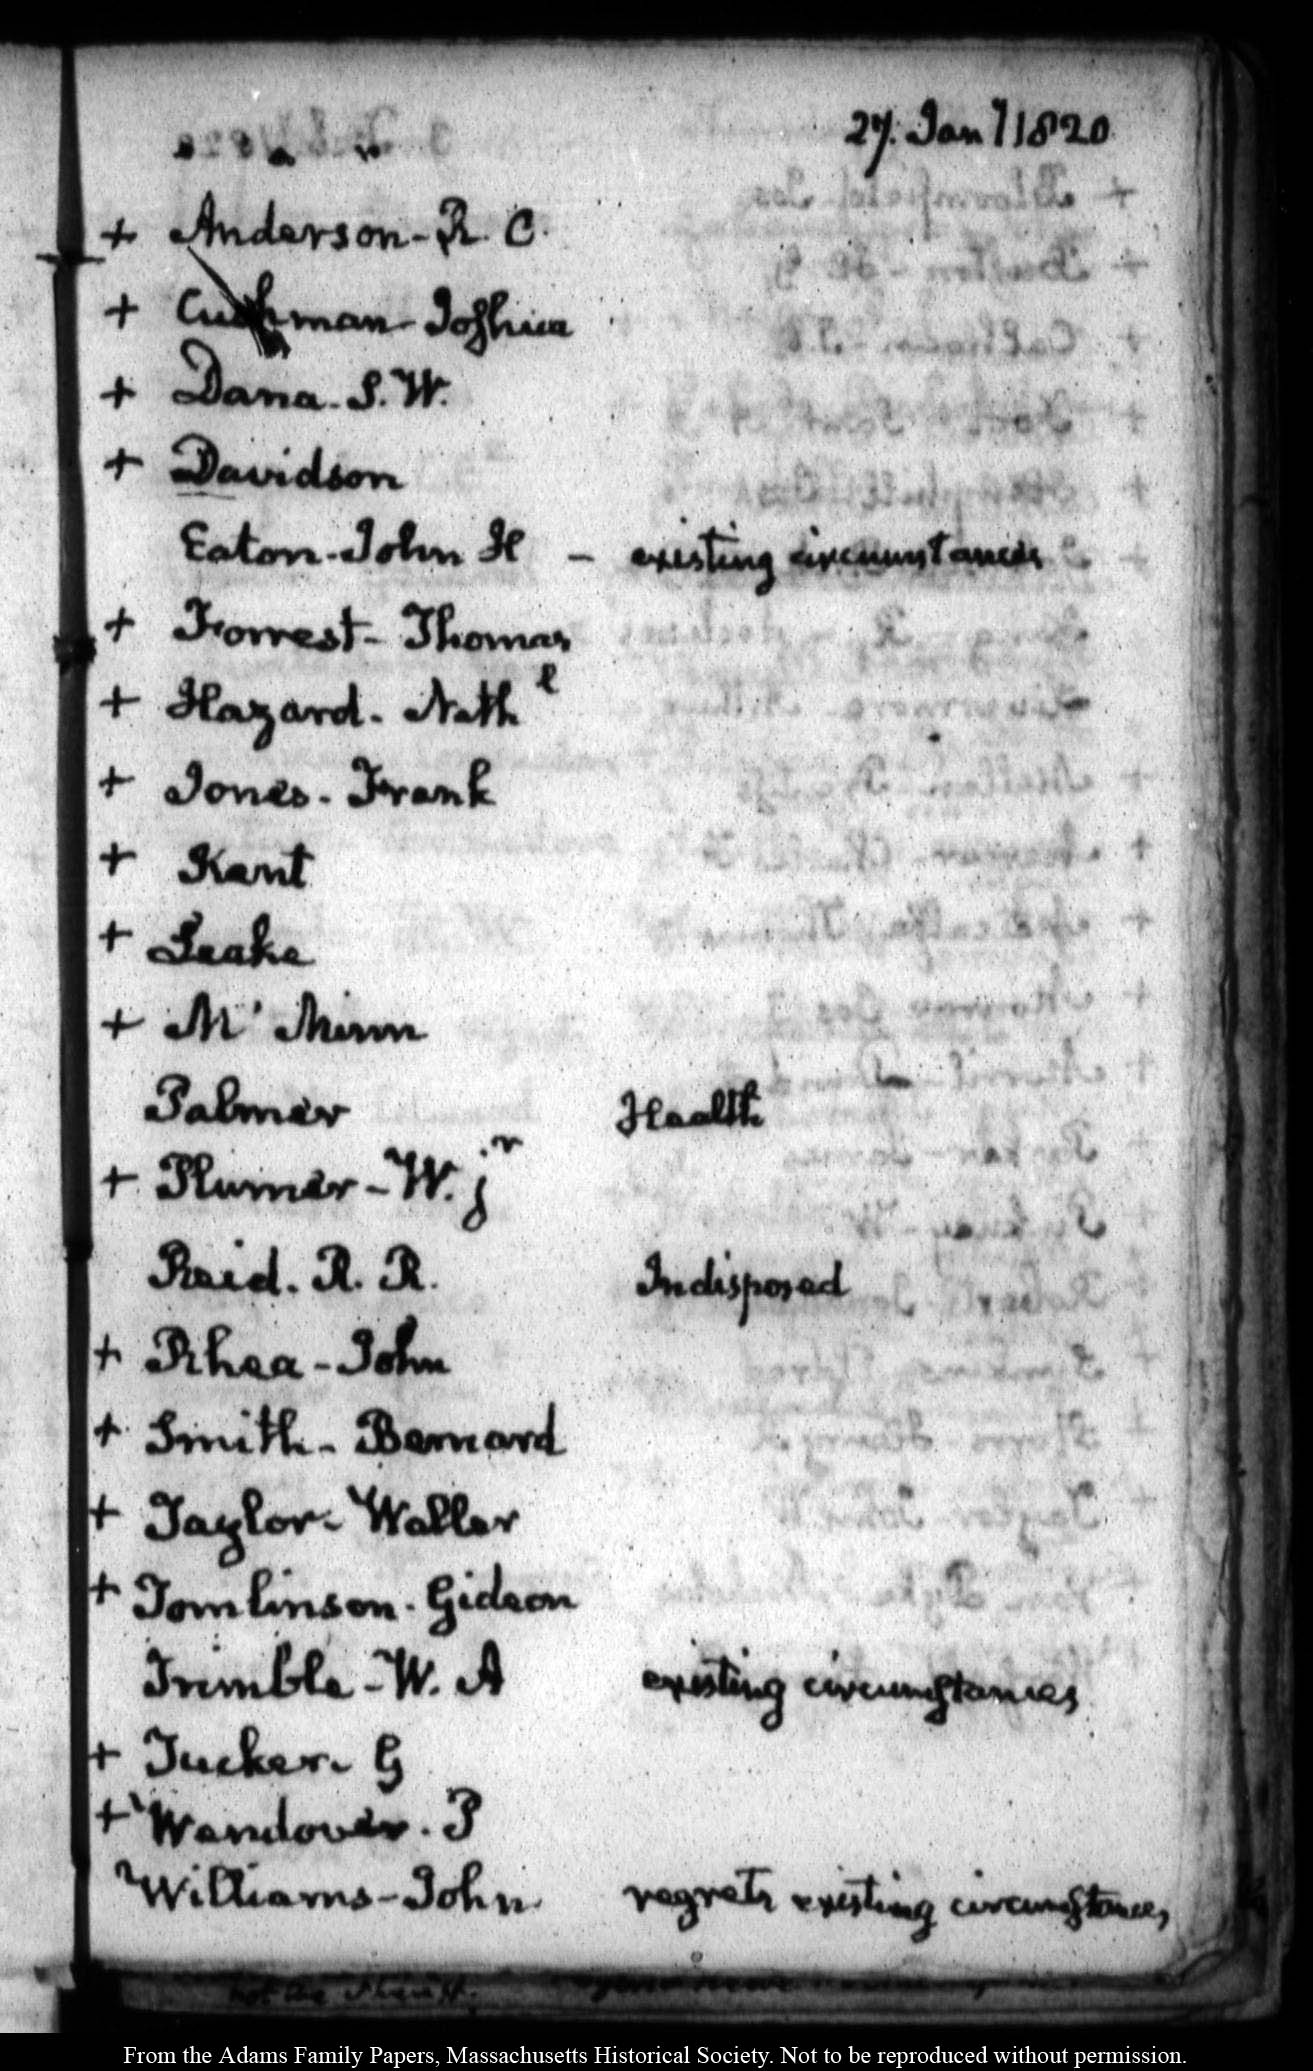 27. Jany 1820
+ Anderson - R. C.
+ Cushman - Joshua
+ Dana - S. W.
+ Davidson
Eaton - John H - existing circumstances
+ Forrest - Thomas
+ Hazard - Nath l
+ Jones - Frank
+ Kent
+ Leake
+ M' Minn
Palmer Health
+ Plumer - W. jr
Reid. R. R. Indisposed
+ Rhea - John
+ Smith - Bernard
+ Taylor - Waller
+ Tomlinson - Gideon
Trimble - W. A existing circumstances
+ Tucker - G
+ Wendover. P
Williams - John regrets existing circumstances
From the Adams Family Papers, Massachusetts Historical Society. Not to be reproduced without permission.